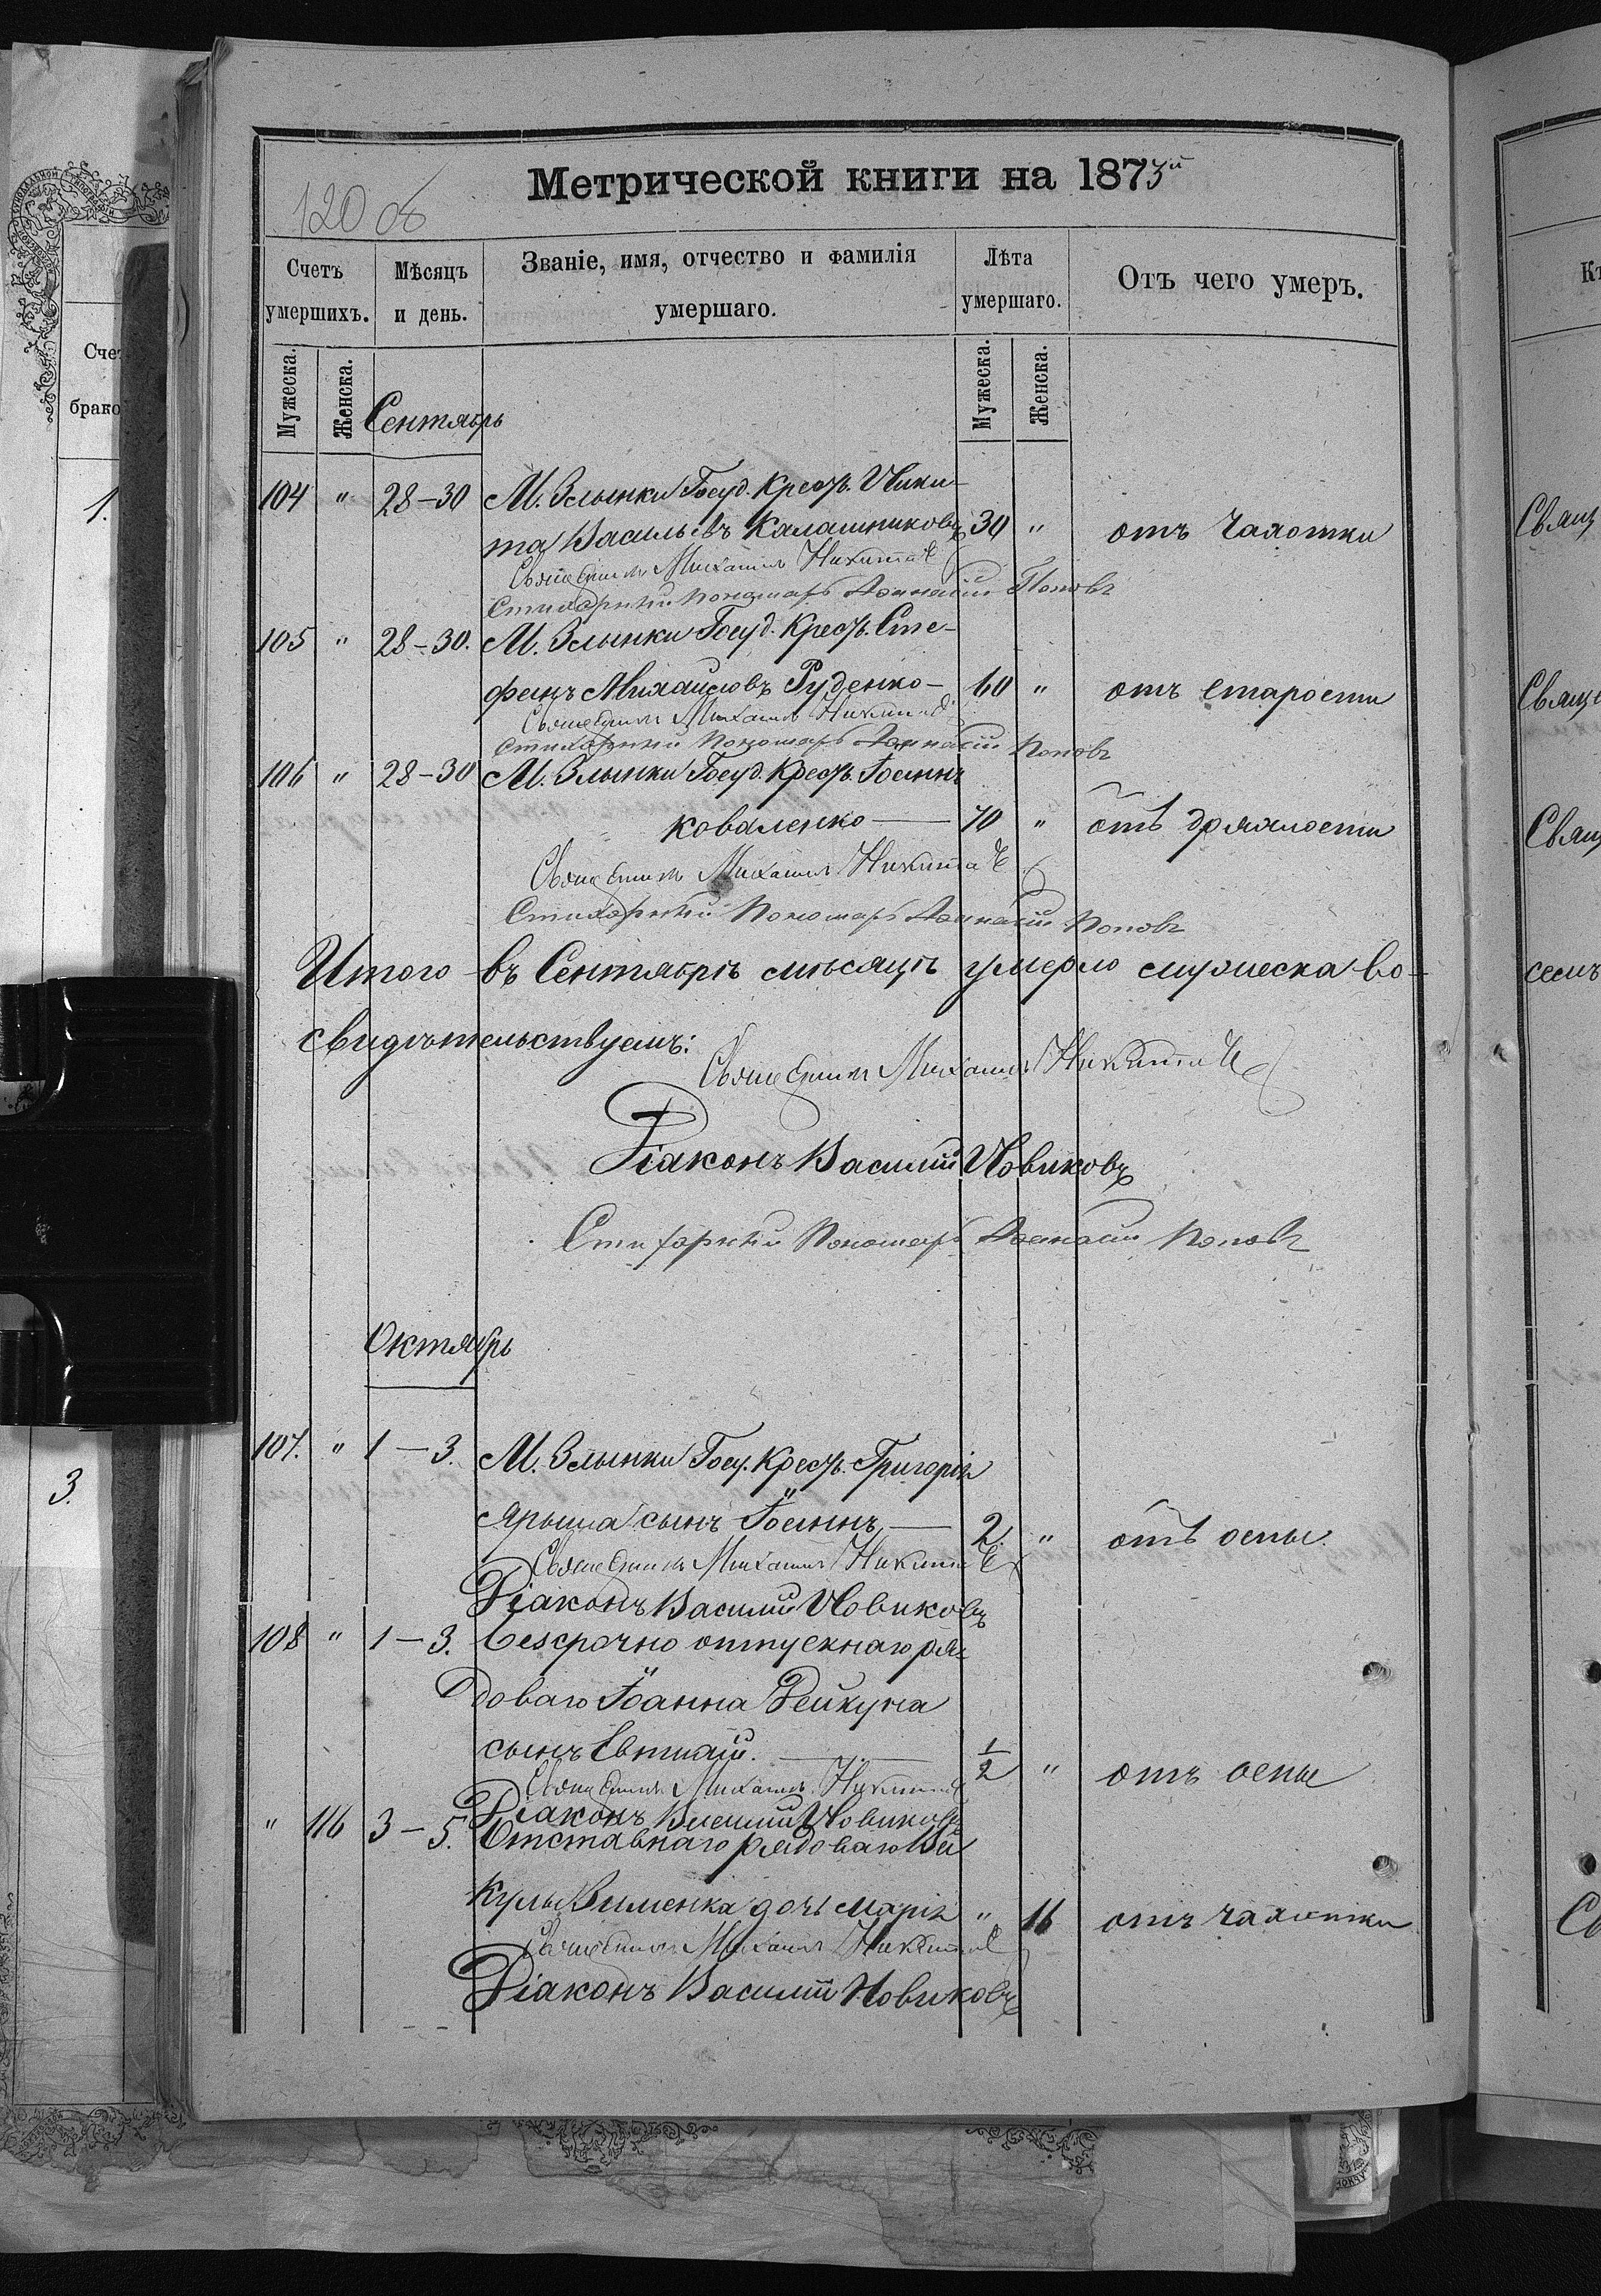 120 об
Метрической книги на 1873й
Счетъ умершихъ.
Мѣсяцъ и день.
Званіе, имя, отчество и фамилія умершаго.
Лѣта умершаго.
Отъ чего умеръ.
Мужеска. Женска. Мужеска. Женска.
Сентябрь
104 " 28-30 М. Злынки Госуд. Крест. Ники-
та Васильевъ Калашниковъ 30 " отъ Чахотки
Священникъ Михаилъ Никита
Стихарный пономарь Афанасій Поповъ
105 " 28-30. М. Злынки Госуд. Крест. Сте-
фанъ Михайловъ Руденко- 60 " отъ старости
Священникъ Михаилъ Никита
Стихарный Пономарь Афанасій Поповъ
106 " 28-30 М. Злынки Госуд. Крест. Іоаннъ
Коваленко — 70 " отъ дряхлости
Священникъ Михаилъ Никита
Стихарный Пономарь Афанасій Поповъ
Итого въ Сентябрѣ мѣсяцѣ умерло мужеска во-
свидѣтельствуемъ:
Священникъ Михаилъ Никита
Діаконъ Василій Новиковъ
Стихарный Пономарь Афанасій Поповъ
Октябрь
107. " 1-3. М. Злынки Госу. Крест. Григорія
Ярыша сынъ Іоаннъ — 2. " отъ оспы.
Священникъ Михаилъ Никита
Діаконъ Василій Новиковъ
108 " 1-3. безсрочно отпускнаго ря-
доваго Іоанна Рейкуна
сынъ Евтихій. — 1/2 " отъ оспы
Священникъ Михаилъ Никита
Діаконъ Василій Новиковъ
" 116 3-5. Отставнаго рядоваго Ва
кулы Зименка дочь Марія " 16 отъ чахотки
Священникъ Михаилъ Никита
Діаконъ Василій Новиковъ
1.
3.